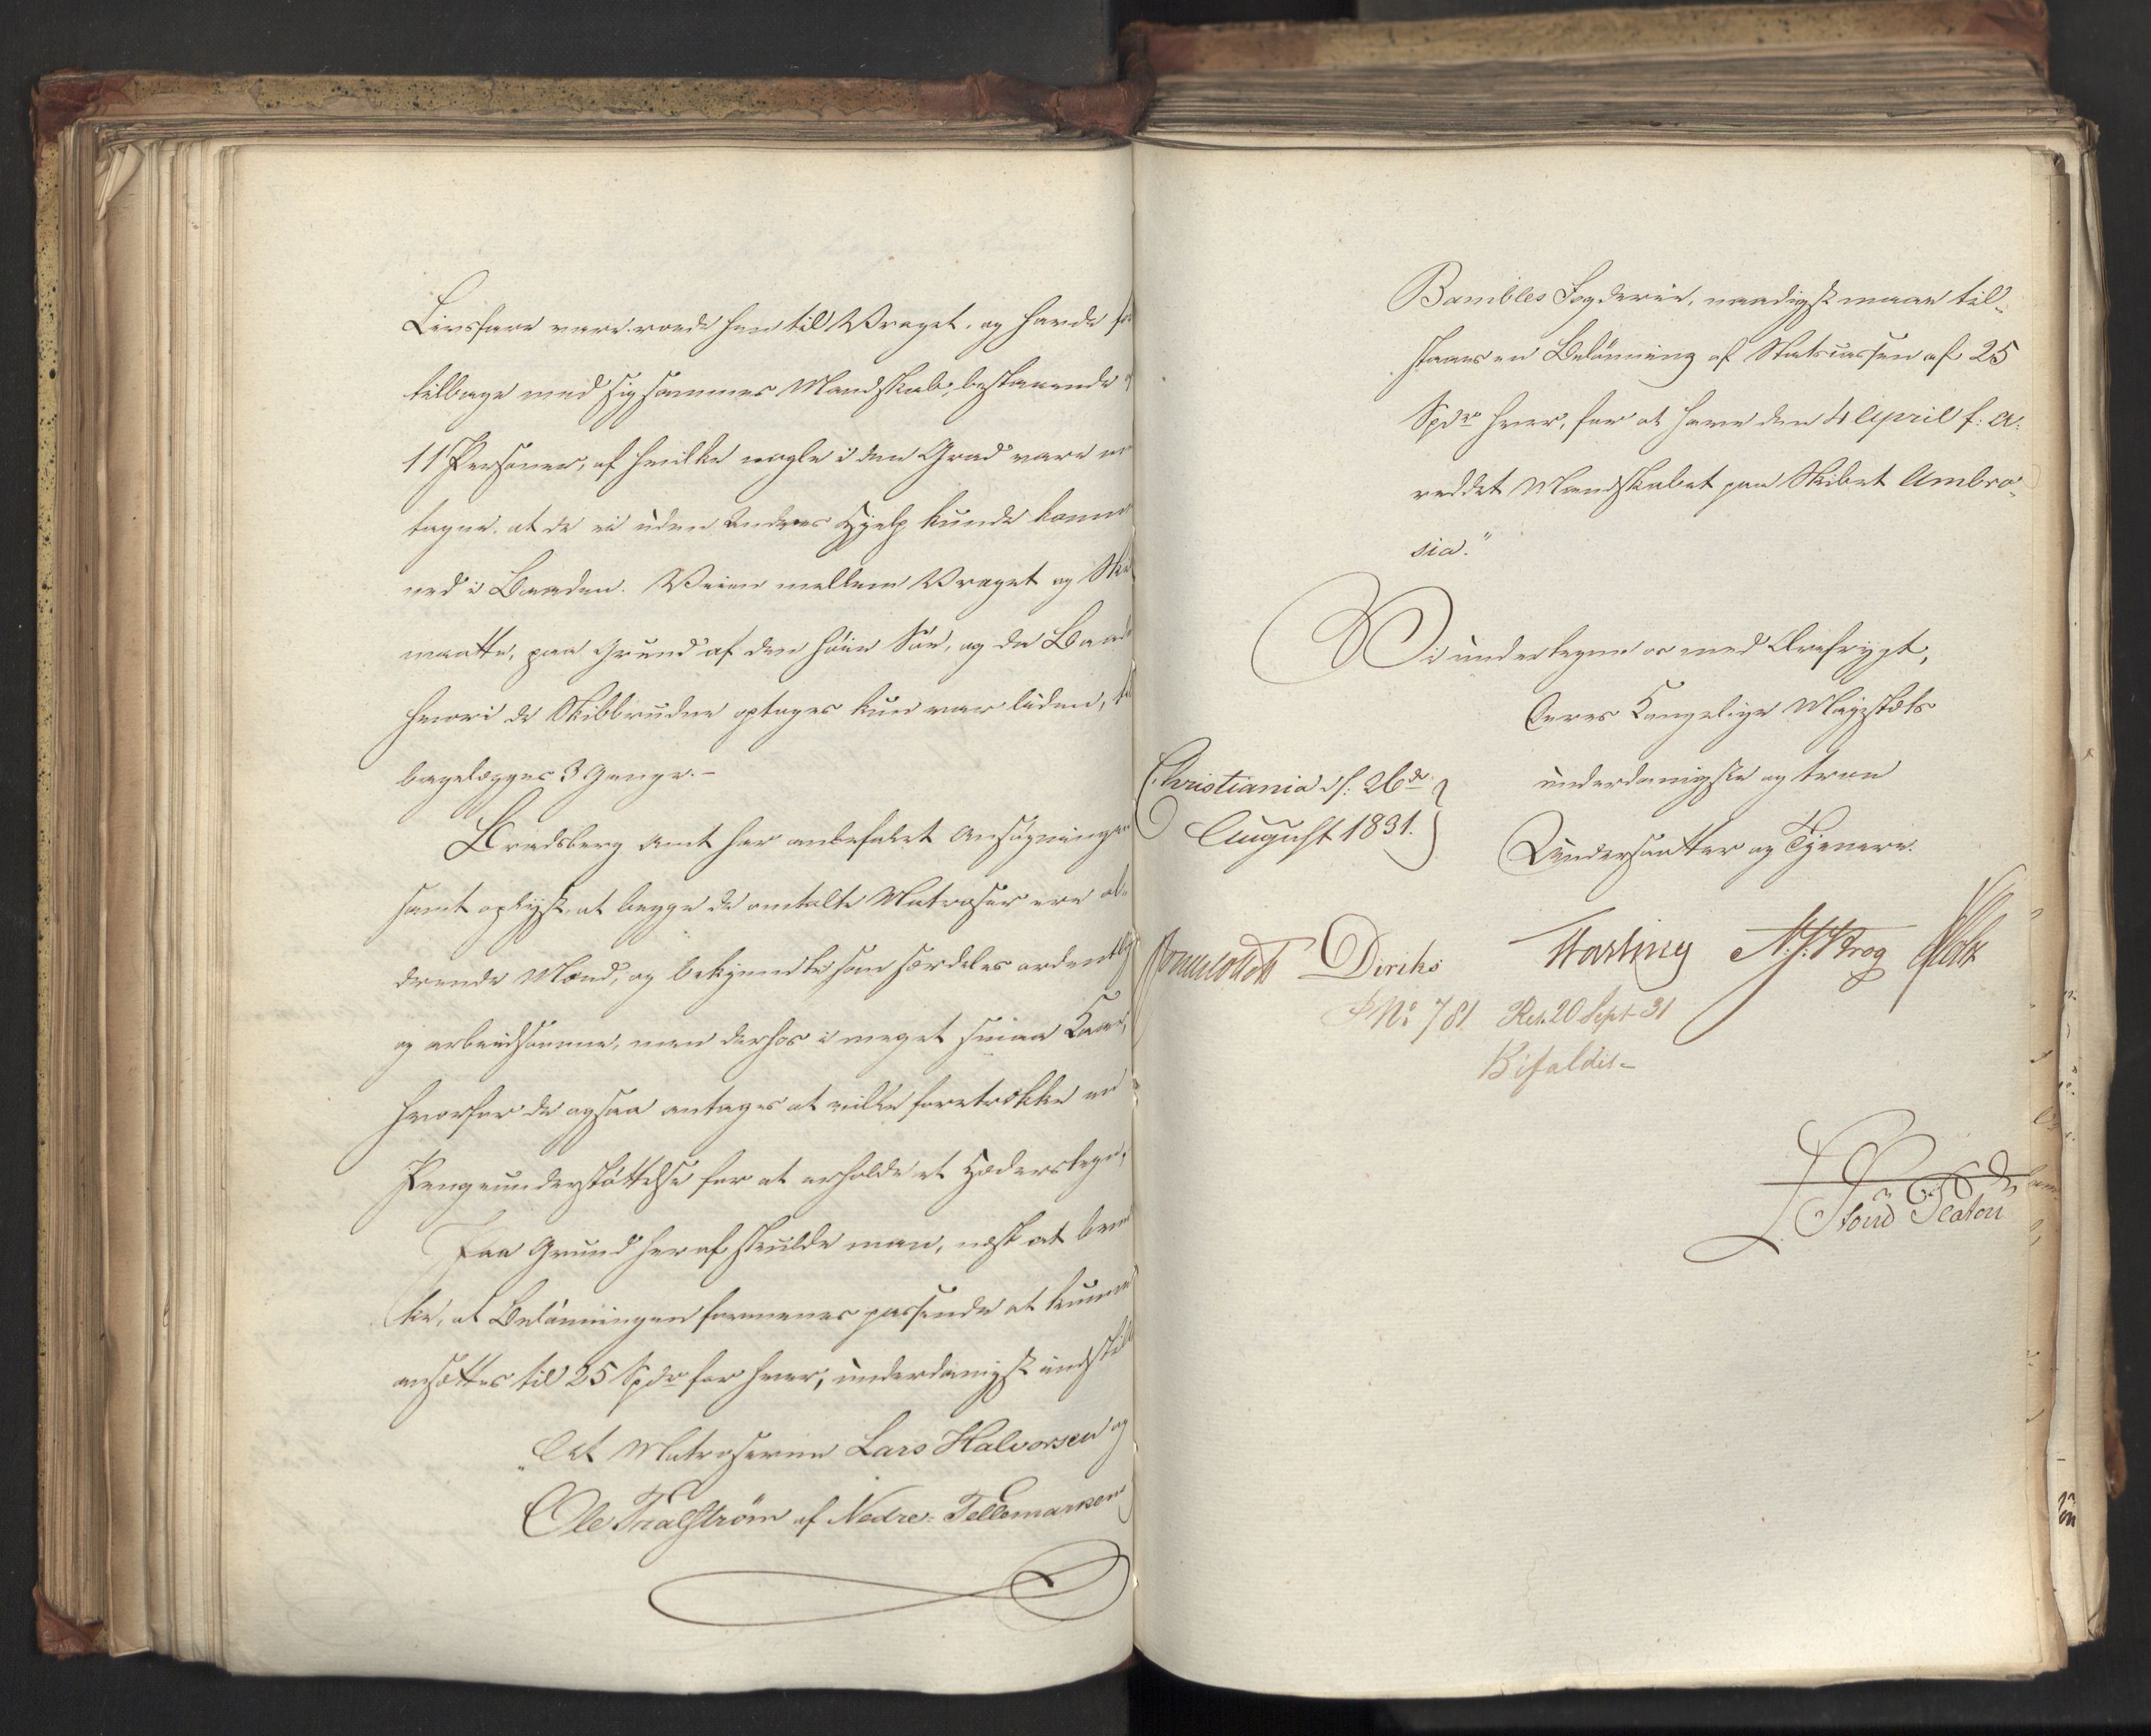 Livsfare vare roede hen til Vraget, og havde
tilbage med sig sammes Mandskab, bestaaende
11 Personer, af hvilke nogle i den Grad vare
tagne, at de ei uden Andres Hjelp kunde komme
ned i Baaden. Veien mellem Vraget og
maatte, paa Grund af den höie Söe, og da Baad
hvori de Skibbrudne optoges kun var liden,
bagelægges 3 Gange.-
Bradsberg Amt har anbefalet Ansögningen
samt oplyst, at begge de omtalte Matroser ere al-
drende Mænd, og bekjendte som særdeles ordentlig
og arbeidsomme, men derhos i meget smaa Kaar,
hvorfor de ogsaa antages at ville foretrække en
Pengeunderstöttelse for at erholde et Hæderstegn.
Paa Grund heraf skulde man, næst at
ke, at Belönningen formenes passende at kunne
ansættes til 25 Spdr for hver, underdanigst indstil
„At Matroserne Lars Halvorsen og
Ole Tralström af Nedre-Tellemarken
Bambles Fogderie, naadigst maae til-
staaes en Belönning af Statscassen af 25
Spdr hver, for at have den 4 April f: A:
reddet Mandskabet paa Skibet Ambro-
sia."
Vi undertegne os med Ærefrygt,
Deres Kongelige Majestæts
Christiania d: 26de
underdanigste og troe
August 1831.
Undersaatter og Tjenere.
Diriks N.J. Krog Holst
PNo 781 Res. 20 Sept 31
Bifaldes-